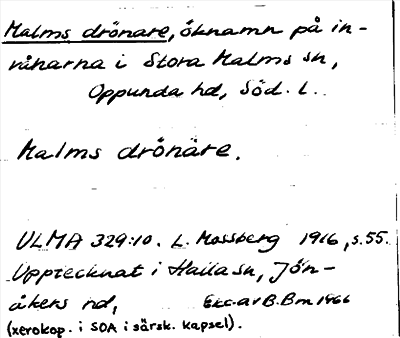 Malms drönare, öknamn på in-
vånarna i Stora Malms sn,
Oppunda hd, Söd. l.
Malms drönäre.
ULMA 329:10. L. Mossberg 1916, s.55.
Upptecknat i Halla sn, Jön-
åkers hd, Exc. av B. Bm 1966
(xerokop. i SOA i särsk. kapsel).